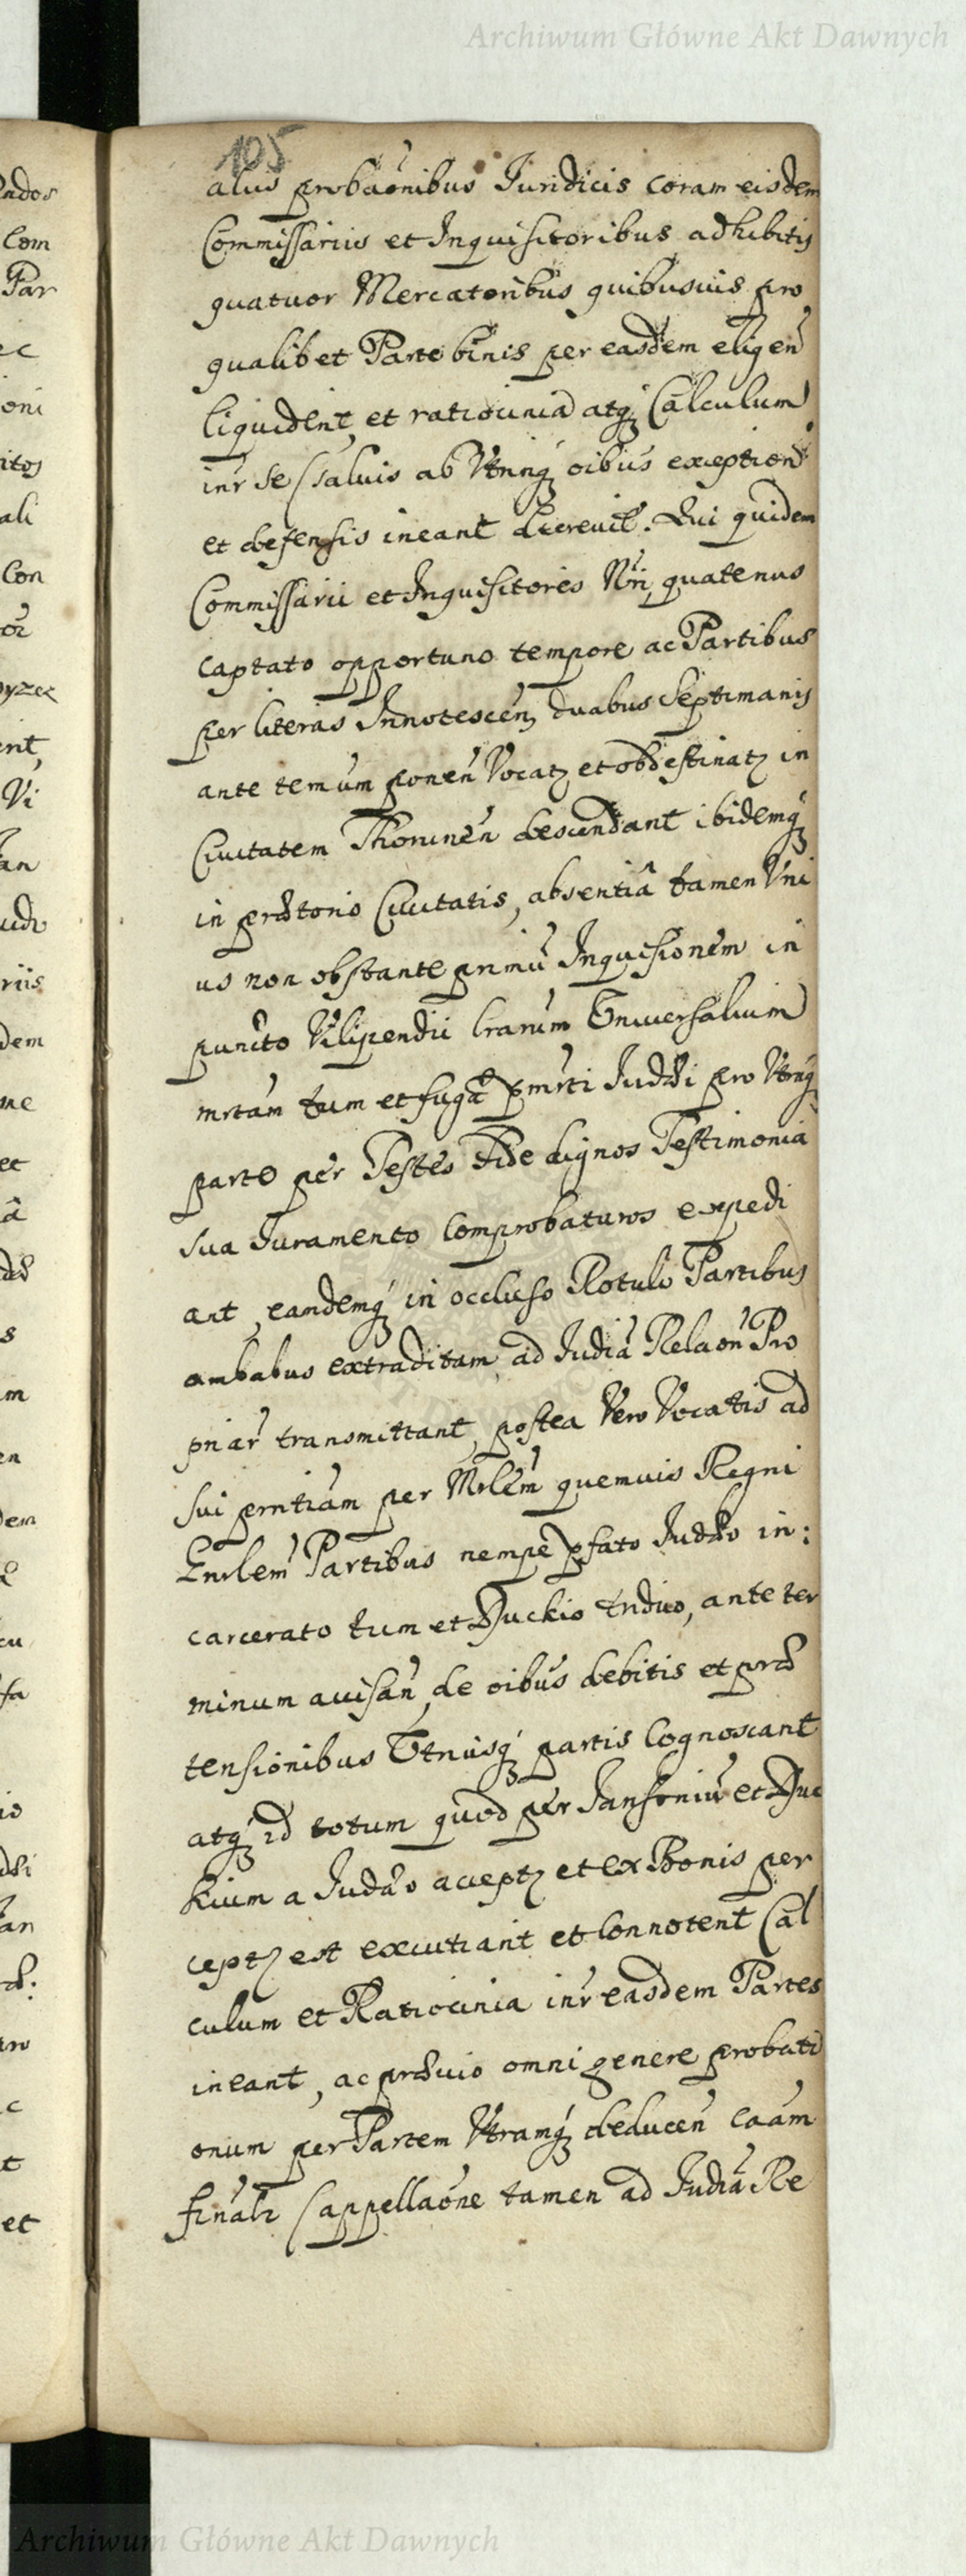 Archiwum Główne Akt Dawnych
105
alus probaonibus Iuridicis coram eisdem
Commissariis et Inquisitoribus adhibitis
quatuor Mercatoribus quibusuis pro
qualibet Parte binis per easdem eligen
liquident, et ratiocinia atq Calculum
inr se (saluis ab Vtrinq oibus exception
et defensis ineant decreuit. Qui quidem
Commissarii et Inquisitores Nri quatenus
captato opportuno tempore ac Partibus
per literas Innotescen duabus Septimanis
ante temum ponen Vocatz et obdestinatz in
Ciuitatem Thorunen descendant ibidemq
in prætorio Ciuitatis, absentiâ tamen Vni
us non obstante primu Inquisionem in
puncto Vilipendii lrarum Vniuersalium
mrtam tum et fugâ pmrti Iudæi pro Vtraq
parte per Testes Fide dignos Testimonia
sua Iuramento Comprobaturos expedi
ant, eandemq in occluso Rotulo Partibus
ambabus extraditam ad Iudia Relaon Pro
priar transmittant, postea Vero Vocatis ad
sui prntiam per Mrlem quemuis Regni
Gnrlem Partibus nempe pfato Iudæo in:
carcerato tum et Duckio Indiuo, ante ter
minum auisan, de oibus debitis et præ
tensionibus Vtriusq partis Cognoscant
atq id totum quod per Iansoniu et Duc
kium a Iudæo acceptz et ex Bonis per
ceptz est excutiant et Connotent Cal
culum et Ratiocinia inr easdem Partes
ineant, ac præuio omni genere probati
onum per Partem Vtramq deducen caam
finalr (appellaone tamen ad Iudia Re
Archiwum Główne Akt Dawnych